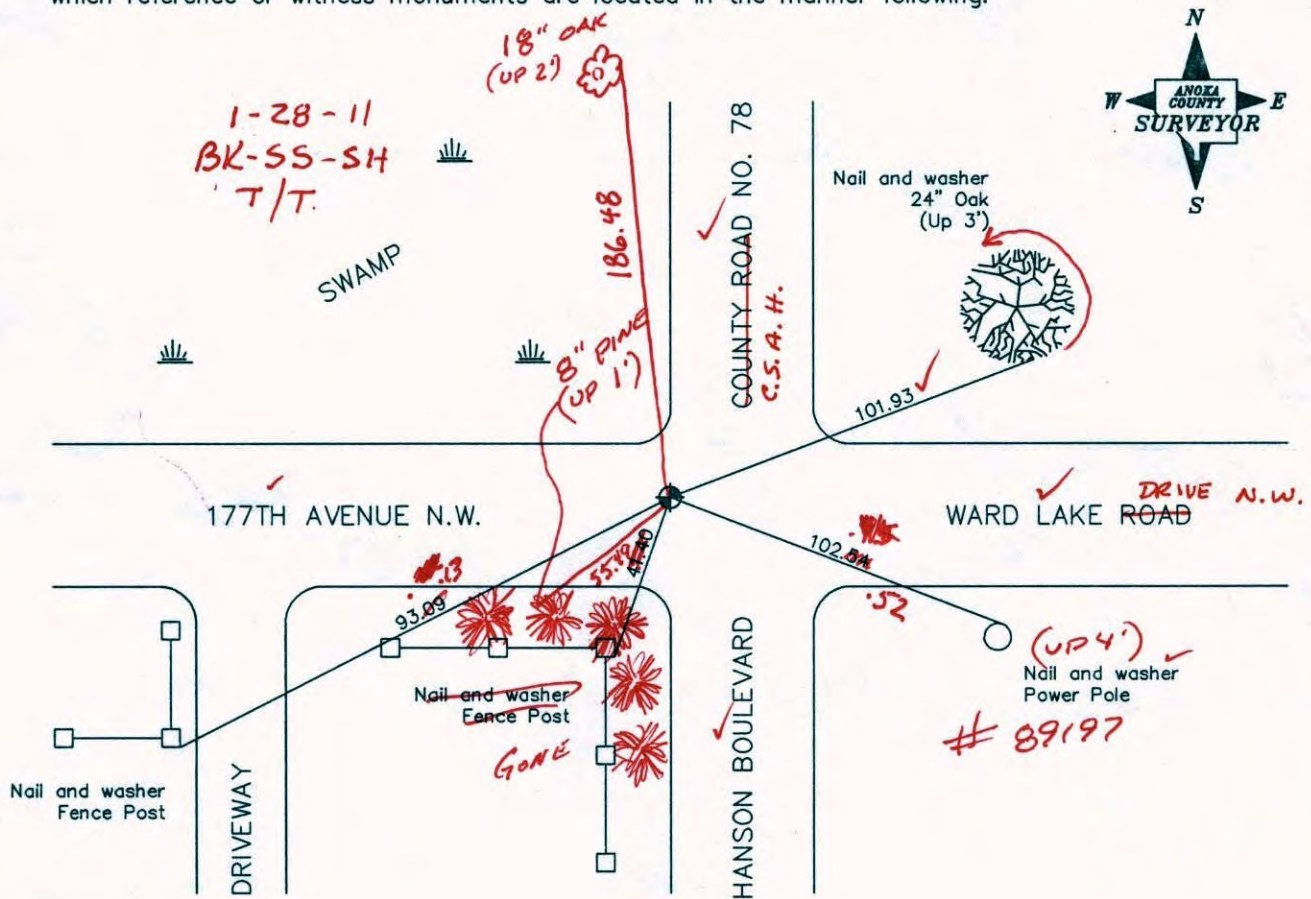 which reference or witness monuments are located in the manner following:
18" OAK
(UP 2')
N
W
ANOKA
COUNTY
E
SURVEYOR
S
1-28-11
BK-SS-SH
T/T.
SWAMP
186.48
COUNTY ROAD NO. 78
C.S.A.H.
Nail and washer
24" Oak
(Up 3')
8" PINE
(UP 1')
101.93
177TH AVENUE N.W.
WARD LAKE ROAD
DRIVE N.W.
55.49
41.40
102.54
.52
.13
93.09
(UP 4')
Nail and washer
Power Pole
# 89197
Nail and washer
Fence Post
GONE
HANSON BOULEVARD
Nail and washer
Fence Post
DRIVEWAY